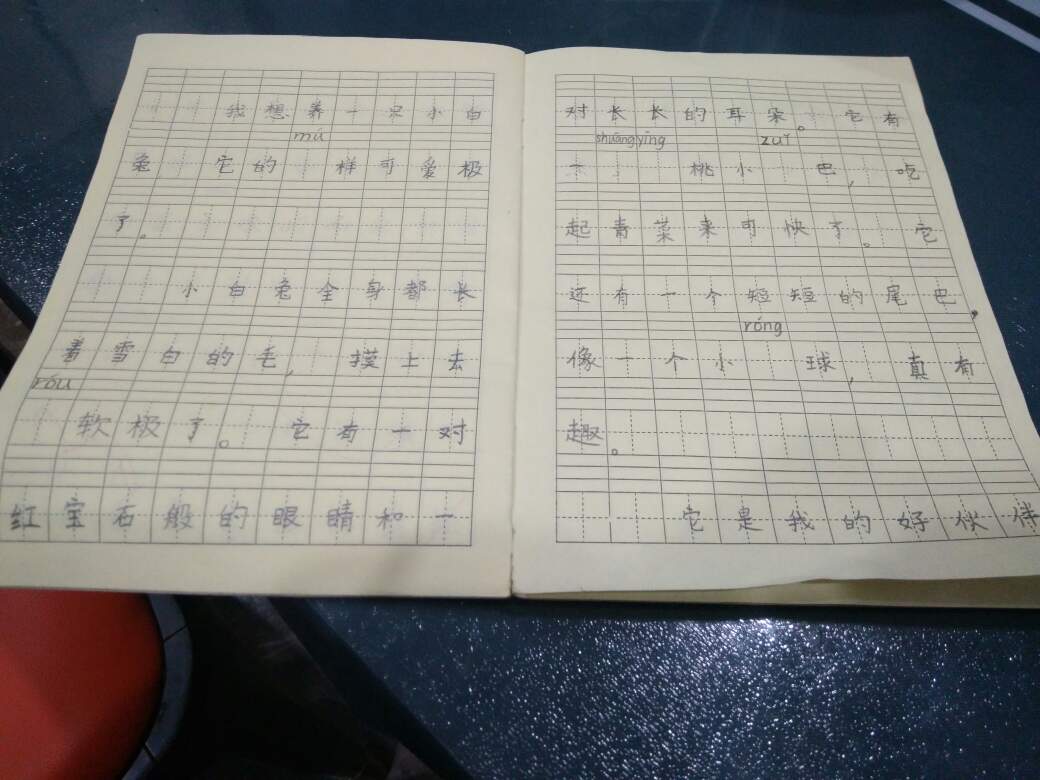 我想养一只小白
mú
兔 它的 样可爱极
了。
小白兔全身都长
着雪白的毛,摸上去
róu
软极了。它有一对
红宝石般的眼睛和一
对长长的耳朵。它有
shuāng yīng zuǐ
桃小 巴,吃
起青菜来可快了。它
还有一个短短的尾巴,
róng
像一个小 球,真有
趣。
它是我的好伙伴